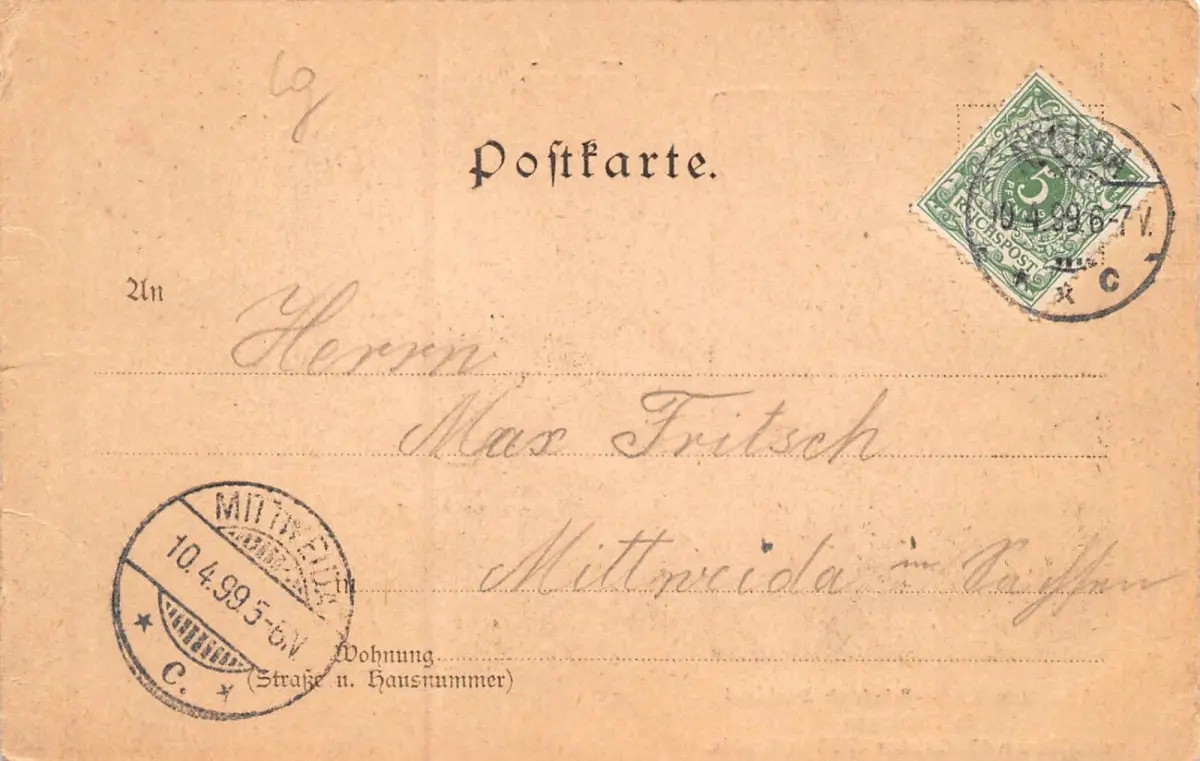 lg
Postkarte.
5
PFENNIG
REICHSPOST
10.4.99.6-7V.
* * C
An
Herrn
Max Fritsch
Mittweida in Sachsen
in
MITTWEIDA
10.4.99.5-6.V
* C. *
Wohnung
(Straße u. Hausnummer)